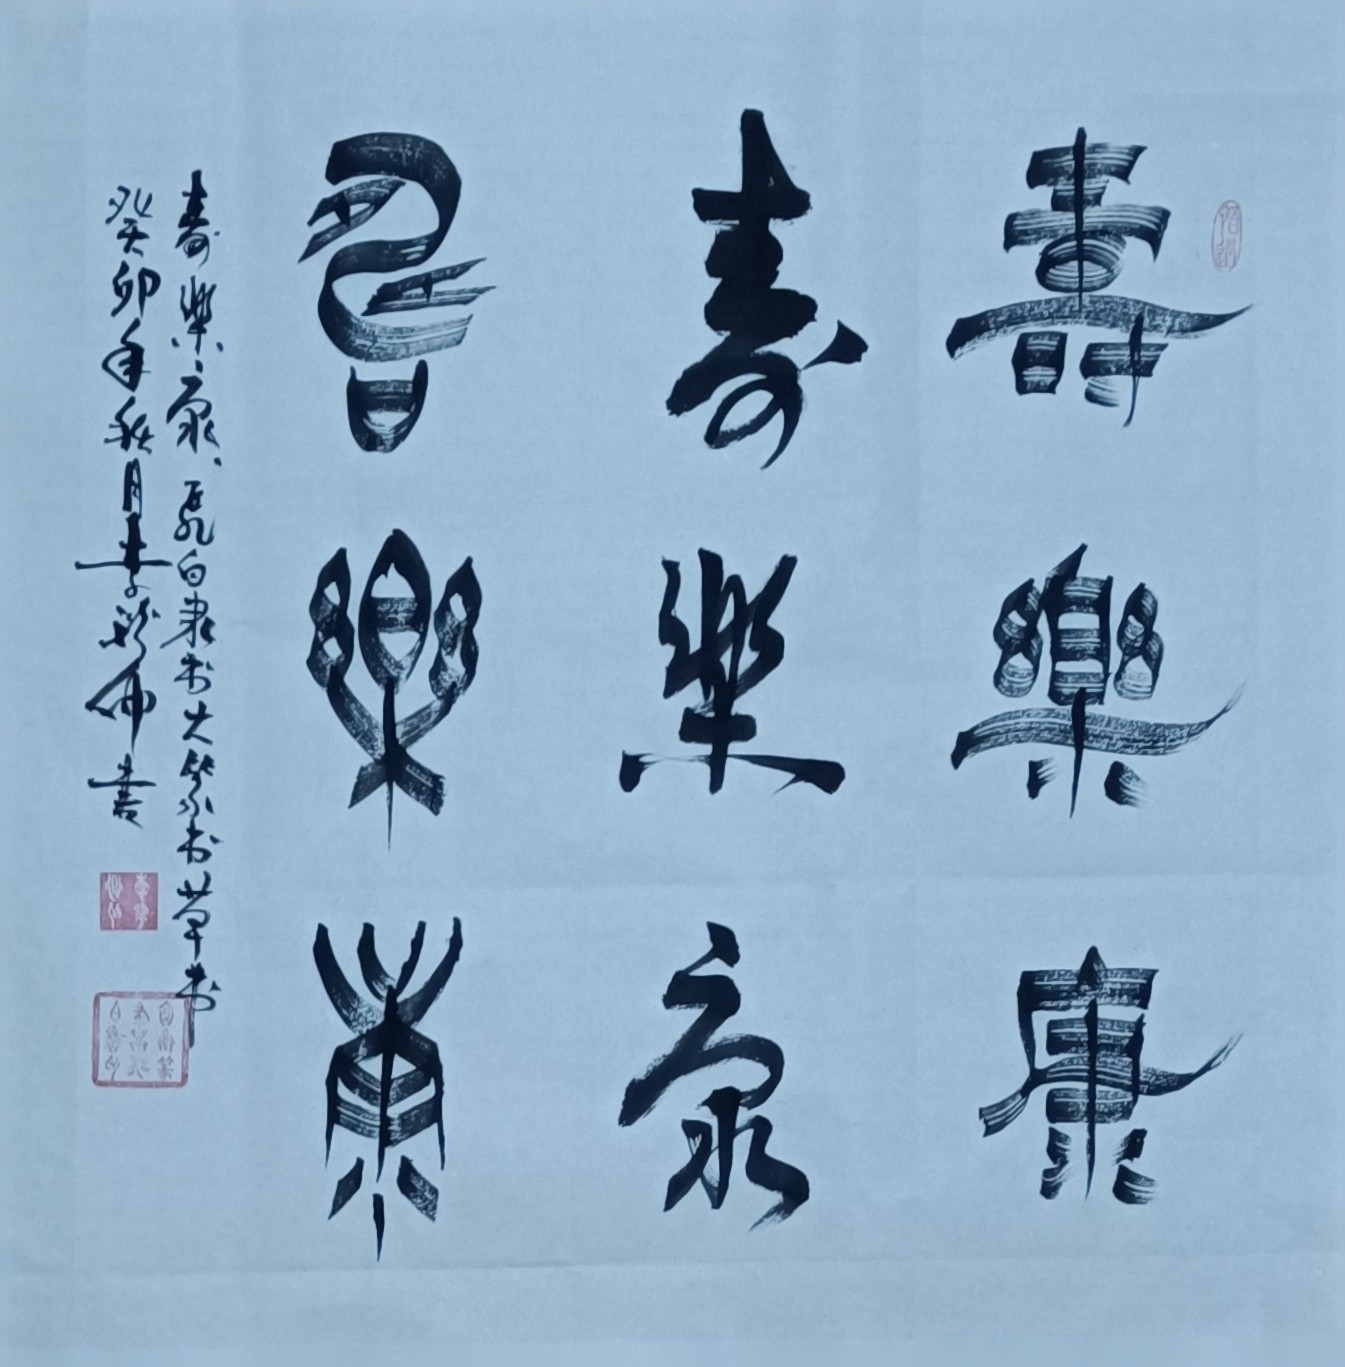 壽樂康
壽樂康
壽樂康
壽樂、康、飛白隸书大篆书草书
癸卯年秋月李
書